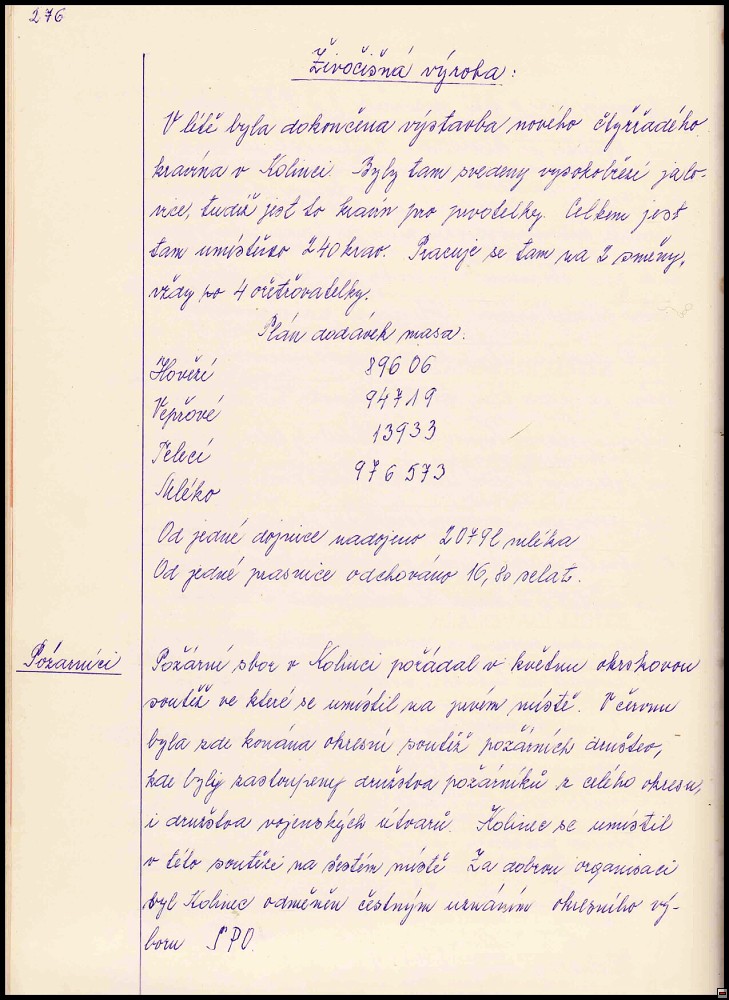 276
Živočišná výroba:
V létě byla dokončena výstavba nového čtyřřadého
kravína v Kolinci. Byly tam svedeny vysokobřezí jalo-
vice, tudíž jest to kravín pro prvotelky. Celkem jest
tam umístěno 240 krav. Pracuje se tam na 2 směny,
vždy po 4 ošetřovatelky.
Plán dodávek masa:
Hovězí 89606
Vepřové 94719
Telecí 13933
Mléko 976573
Od jedné dojnice nadojeno 2079l mléka
Od jedné prasnice odchováno 16,80 selat.
Požárníci
Požární sbor v Kolinci pořádal v květnu okrskovou
soutěž ve které se umístil na prvém místě. V červnu
byla zde konána okresní soutěž požárních družstev,
kde byly zastoupeny družstva požárníků z celého okresu,
i družstva vojenských útvarů. Kolinec se umístil
v této soutěži na šestém místě Za dobrou organisaci
byl Kolinec odměněn čestným uznáním okresního vý-
boru SPO.